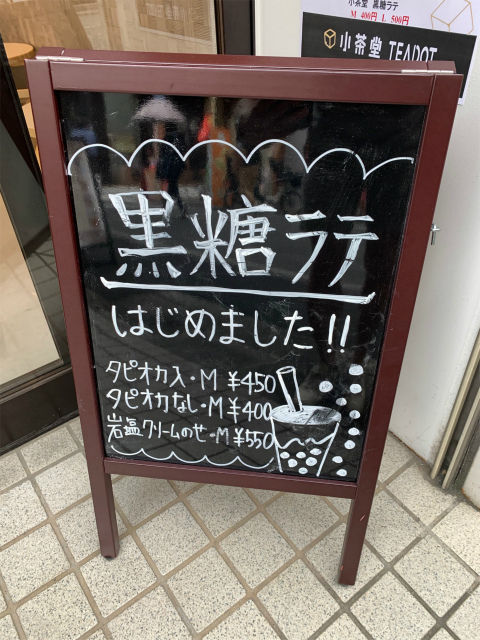 小茶堂 黒糖ラテ
M 400円 L 500円
小茶堂 TEAPOT
黒糖ラテ
はじめました!!
タピオカ入・M ¥450
タピオカなし・M ¥400
岩塩クリームのせ・M ¥550